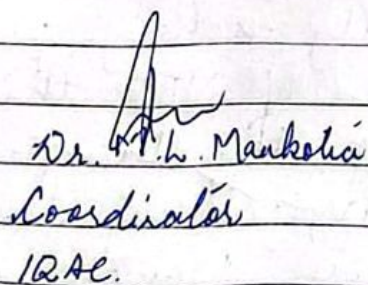 Dr. M.L. Mankotia
Coordinator
IQAC.